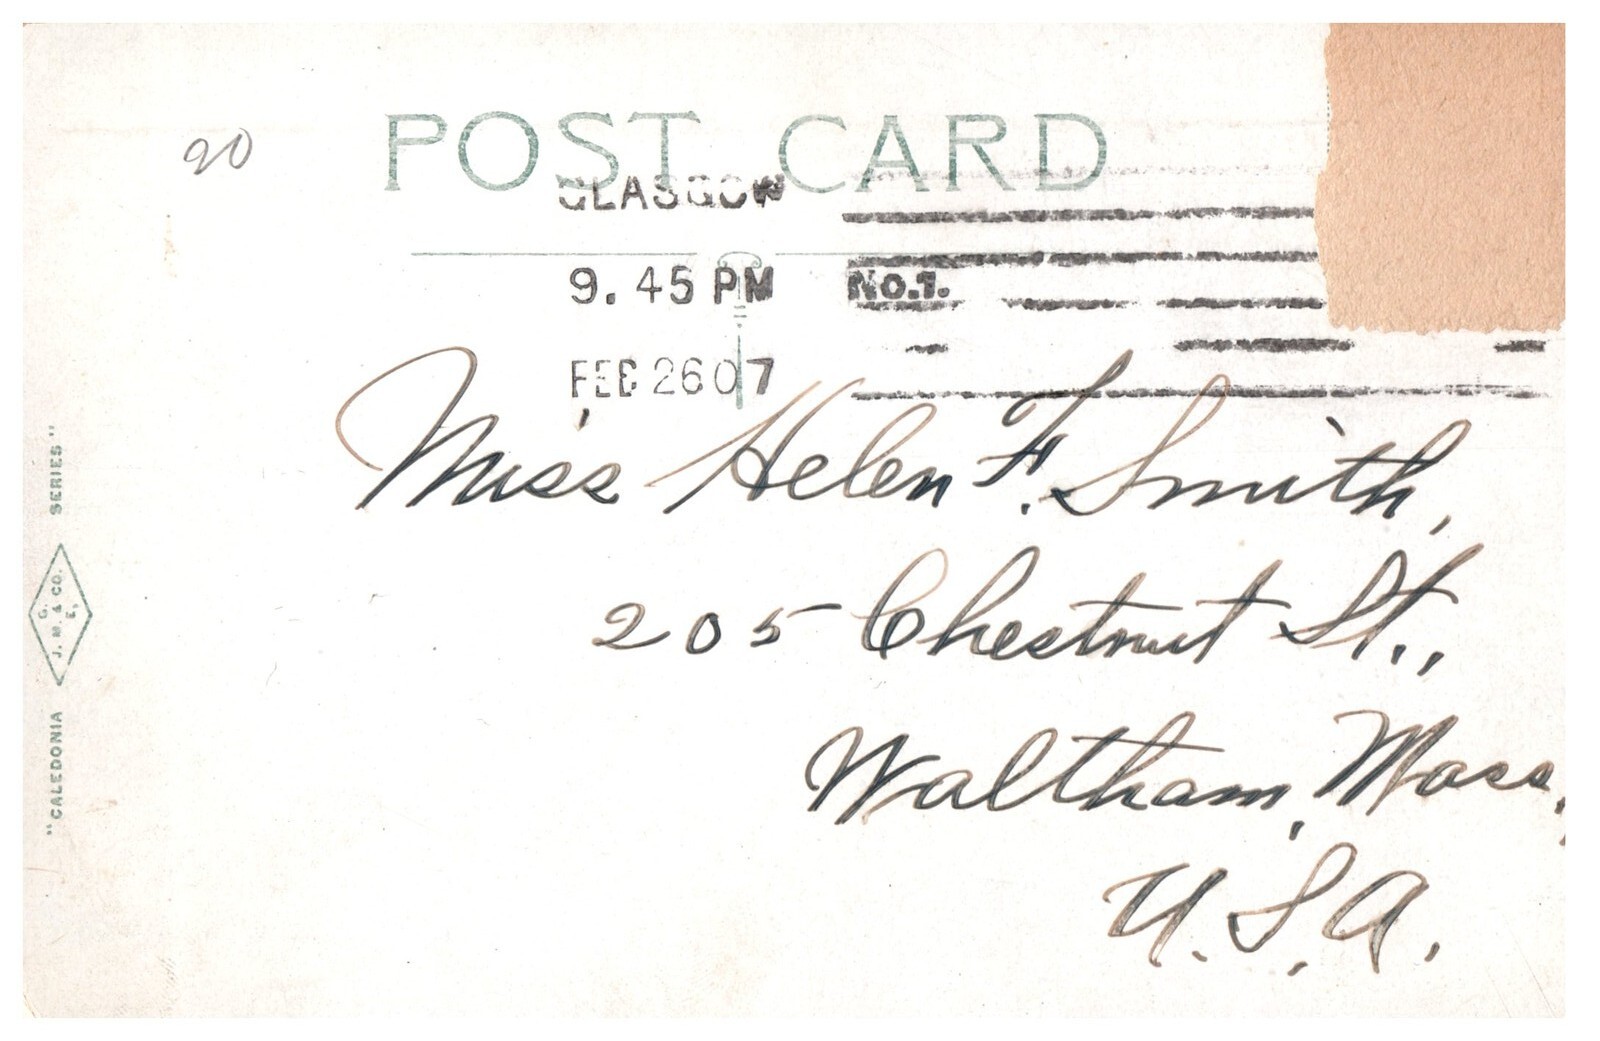 90
POST CARD
GLASGOW
9.45 PM No.1.
FEB 26 07
Miss Helen F. Smith,
205 Chestnut St.,
Waltham, Mass.,
U.S.A.
"CALEDONIA SERIES"
G.
J. M. & CO.
E,